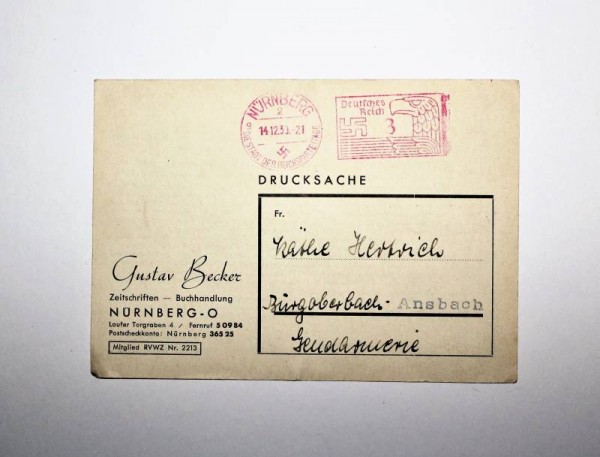 NÜRNBERG
2
14.12.39.-21
Deutsches
Reich
3
DRUCKSACHE
Fr.
Käthe Hertrich
Burgoberbach- Ansbach
Gendarmerie
Gustav Becker
Zeitschriften — Buchhandlung
NÜRNBERG-O
Laufer Torgraben 4 / Fernruf 5 09 84
Postscheckkonto: Nürnberg 365 25
Mitglied RVWZ Nr. 2213